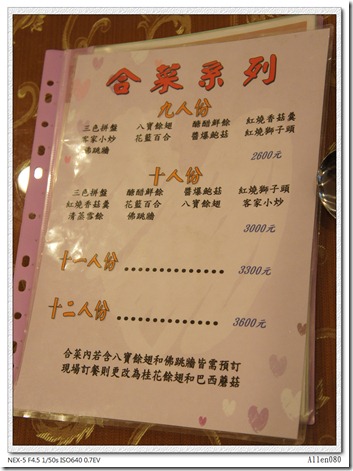 合菜系列
九人份
三色拼盤 八寶餘翅 醣醋鮮餘 紅燒香菇羹
客家小炒 花藍百合 醬爆鮑菇 紅燒獅子頭
佛跳牆
2600元
十人份
三色拼盤 醣醋鮮餘 醬爆鮑菇 紅燒獅子頭
紅燒香菇羹 花藍百合 八寶餘翅 客家小炒
清蒸雪餘 佛跳牆
3000元
十一人份 ................ 3300元
十二人份 ................ 3600元
合菜內若含八寶餘翅和佛跳牆皆需預訂
現場訂餐則更改為桂花餘翅和巴西蘑菇
NEX-5 F4.5 1/50s ISO640 0.7EV
Allen080